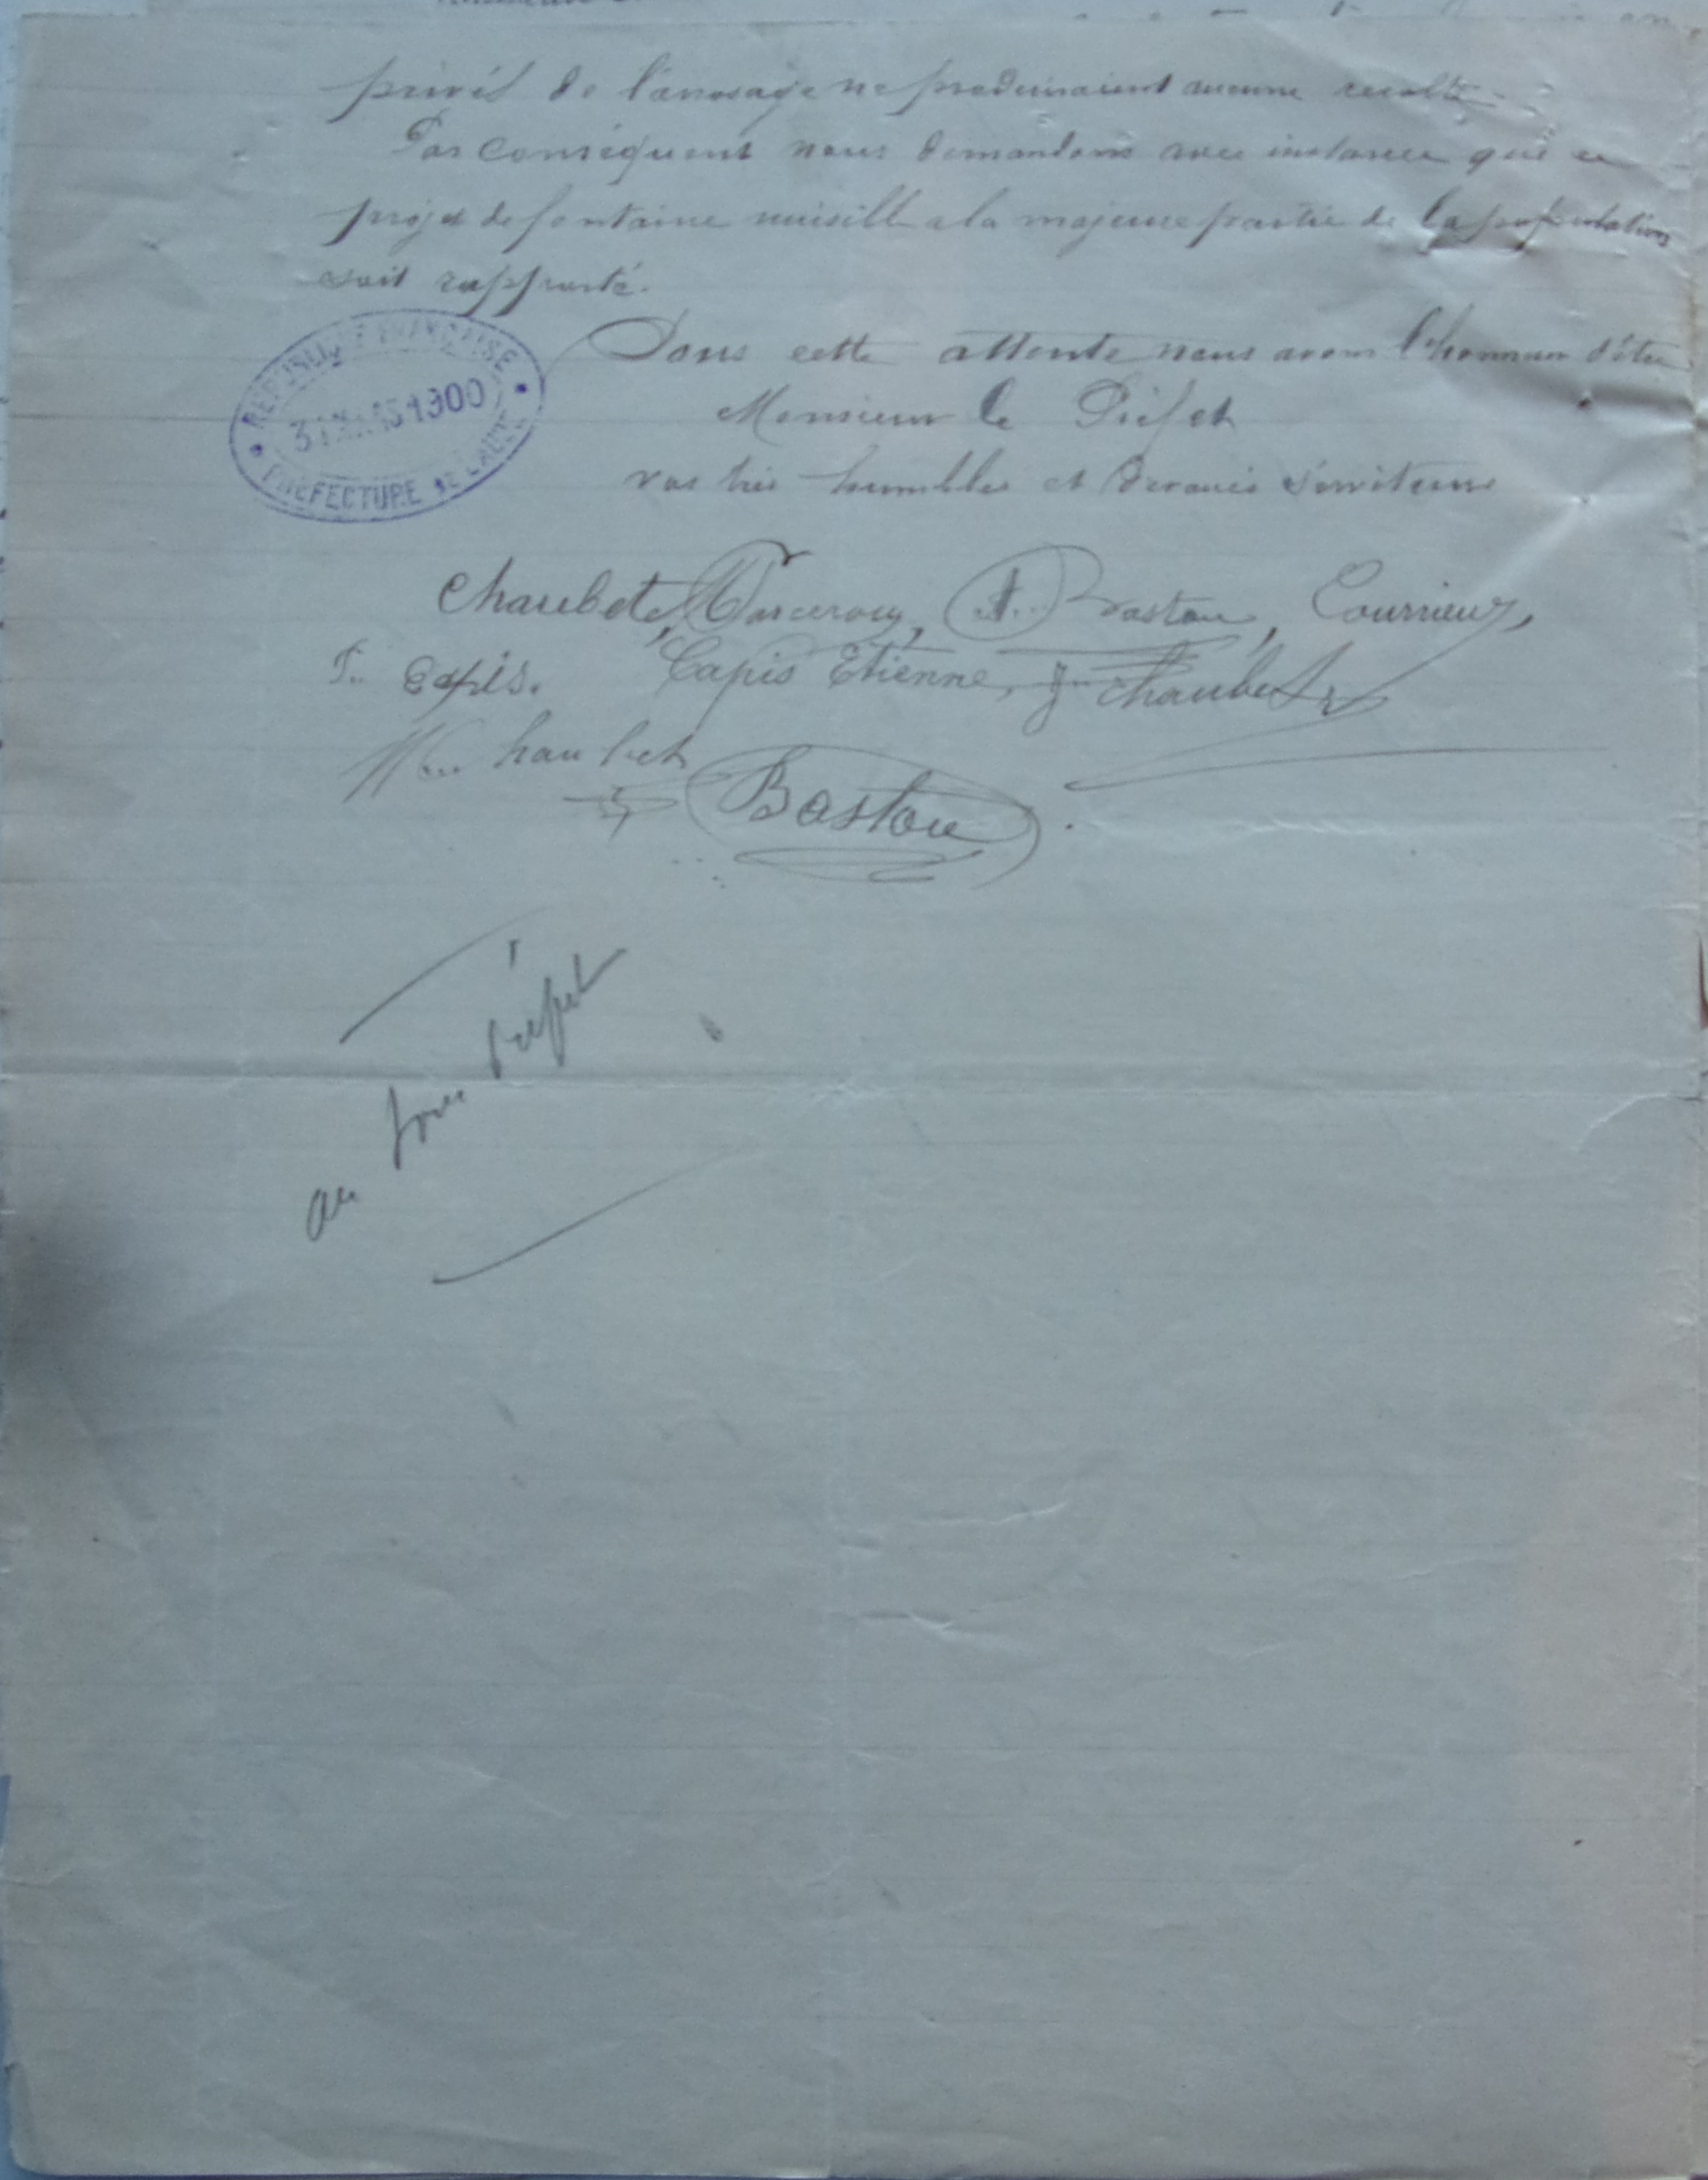 privés de l'arrosage ne produiraient aucune recolte.
Par conséquent nous demandons avec instance que ce
projet de fontaine nuisible a la majeure partie de la population
soit rapporté.
Dans cette attente nous avons l'honneur d'être
Monsieur le Préfet
vos très humbles et dévoués serviteurs
RÉPUBLIQUE FRANÇAISE
31 MARS 1900
PRÉFECTURE DE L'AUDE
Chaubet, Marcerou, A. Bastou, Courrieu,
F. Capis. Capis Etienne, J. Chaubet
Chaubet
Bastou
au sous Préfet